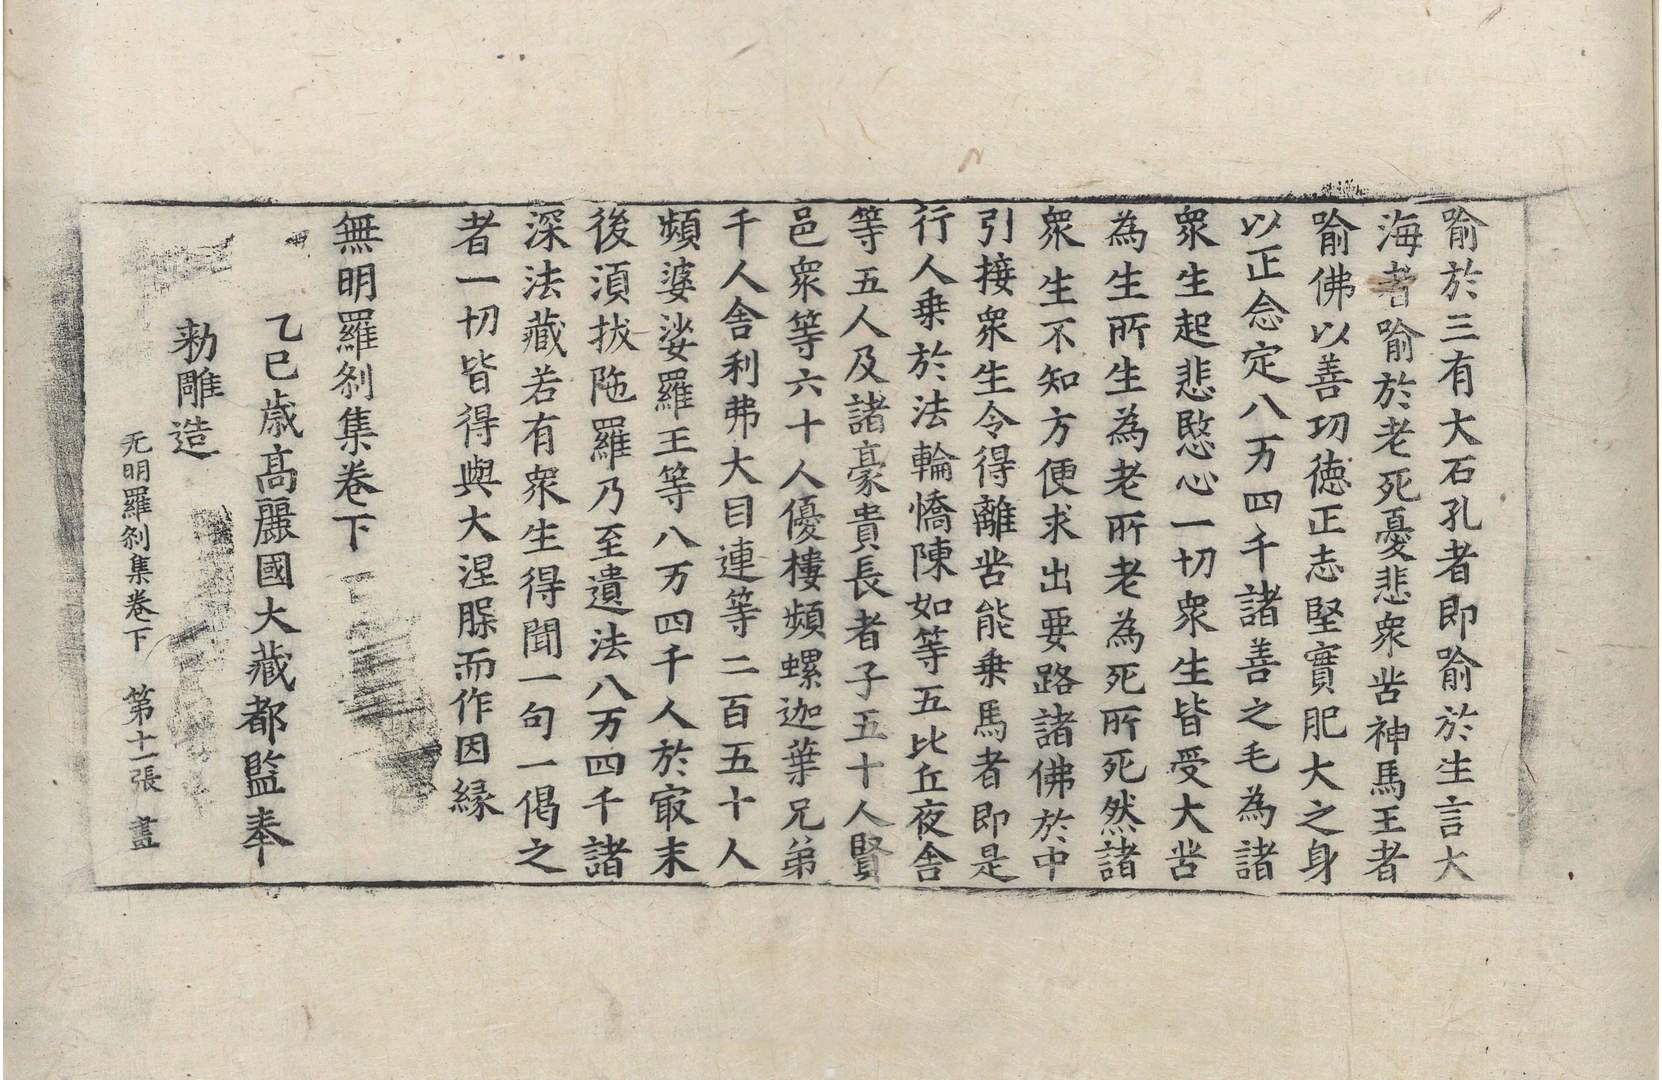 喻於三有大石孔者即喻於生言大
海者喻於老死憂悲衆苦神馬王者
喻佛以善功德正志堅實肥大之身
以正念定八万四千諸善之毛為諸
衆生起悲愍心一切衆生皆受大苦
為生所生為老所老為死所死然諸
衆生不知方便求出要路諸佛於中
引接衆生令得離苦能乗馬者即是
行人乗於法輪憍陳如等五比丘夜舍
等五人及諸豪貴長者子五十人賢
邑衆等六十人優樓頻螺迦葉兄弟
千人舍利弗大目連等二百五十人
頻婆娑羅王等八万四千人於㝡末
後湏拔陁羅乃至遺法八万四千諸
深法藏若有衆生得聞一句一偈之
者一切皆得與大涅槃而作因緣
無明羅刹集卷下
乙巳歳高麗國大藏都監奉
勅雕造
无明羅刹集卷下 第十一張 𦘕